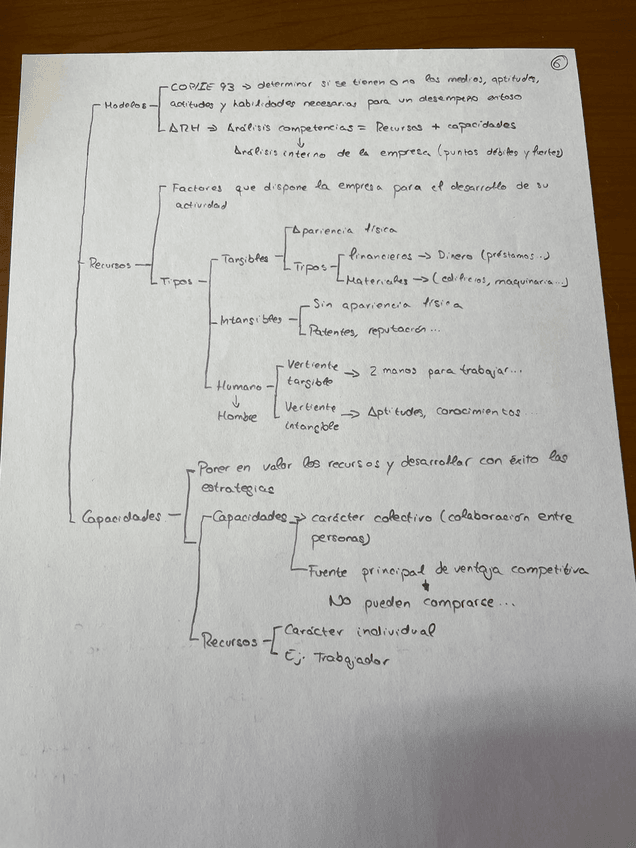 6
Modelos
COPIIE 93 → determinar si se tienen o no los medios, aptitudes,
actitudes y habilidades necesarias para un desempeño exitoso
ARH → Análisis competencias = Recursos + capacidades
↓
Análisis interno de la empresa (puntos débiles y fuertes)
Recursos
Factores que dispone la empresa para el desarrollo de su
actividad
Tipos
Tangibles
Apariencia física
Tipos
financieros → Dinero (préstamos...)
Materiales → (edificios, maquinaria...)
Intangibles
Sin apariencia física
Patentes, reputación...
Humano
↓
Hombre
Vertiente
tangible → 2 manos para trabajar...
Vertiente
intangible → Aptitudes, conocimientos
Capacidades
Poner en valor los recursos y desarrollar con éxito las
estrategias
Capacidades → carácter colectivo (colaboración entre
personas)
Fuente principal de ventaja competitiva
↓
No pueden comprarse...
Recursos
Carácter individual
Ej. Trabajador